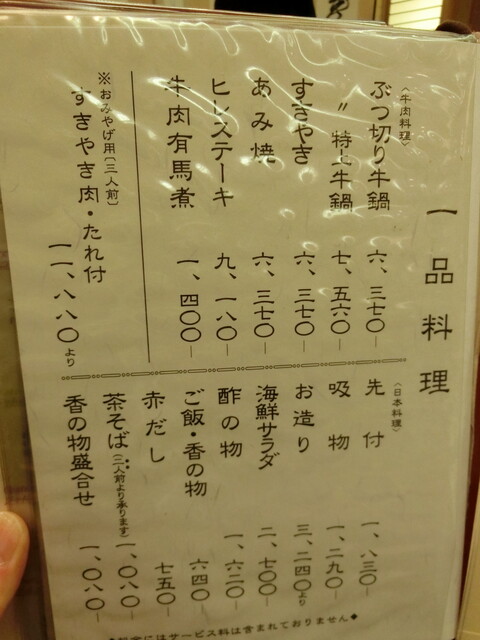 一品料理
〈牛肉料理〉
ぶつ切り牛鍋 六、三七〇―
〃 特上牛鍋 七、五六〇―
すきやき 六、三七〇―
あみ焼 六、三七〇―
ヒレステーキ 九、一八〇―
牛肉有馬煮 一、四〇〇―
※おみやげ用(三人前)
すきやき肉・たれ付 一一、八八〇より
〈日本料理〉
先付 一、八三〇―
吸物 一、二九〇―
お造り 三、二四〇より
海鮮サラダ 二、七〇〇―
酢の物 一、六二〇―
ご飯・香の物 六四〇―
赤だし 七五〇―
茶そば(二人前より承ります) 一、〇八〇―
香の物盛合せ 一、〇八〇―
にはサービス料は含まれておりません◆